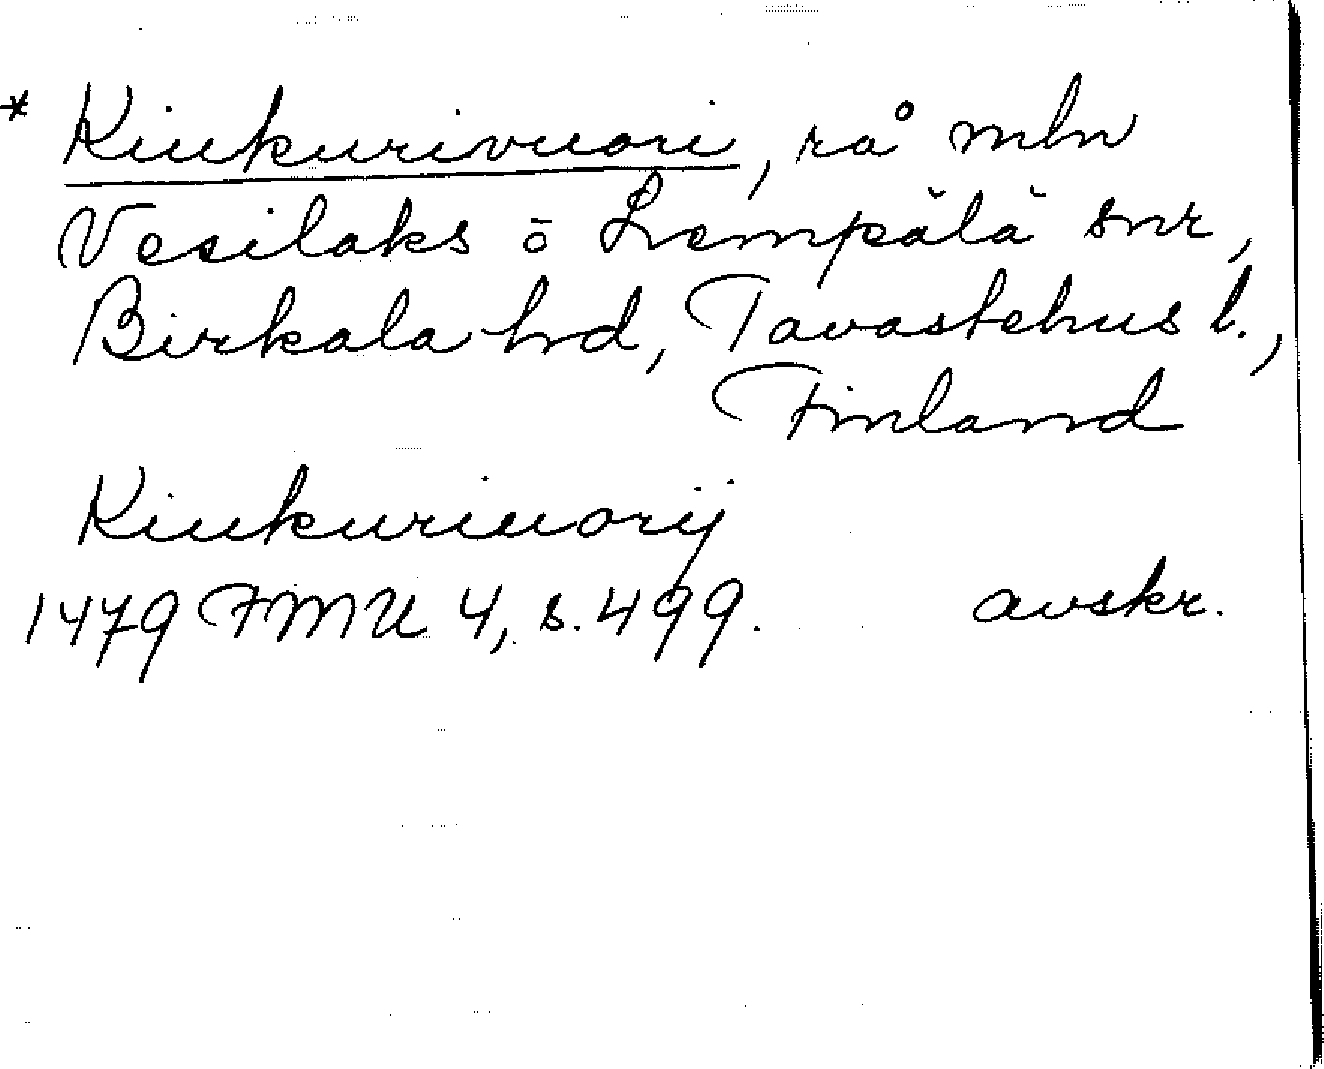 * Kiukurivuori, rå mln
Vesilaks o Lempälä snr,
Birkala hd, Tavastehus l.,
Finland
Kiukuriuorij
1479 FMU 4, s. 499. avskr.